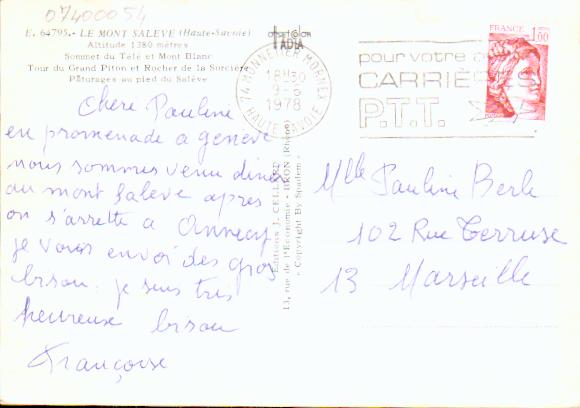 07400054
E. 64795.- LE MONT SALÈVE (Haute-Savoie)
Altitude 1380 mètres
Sommet du Télé et Mont Blanc
Tour du Grand Piton et Rocher de la Sorcière
Pâturages au pied du Salève
offset color
IADIA
74 MONNETIER-MORNEX
18H30
9-6
1978
HAUTE-SAVOIE
pour votre
CARRIÈRE
P.T.T.
FRANCE
1,00
Chère Pauline
en promenade a genève
nous sommes venu diner
au mont Salève apres
on s'arrette a Annecy
je vous envoi des gros
bisou. je suis tres
heureuse bisou
Françoise
Editions J. CELLARD
13, rue de l'Economie - BRON (Rhône)
« Copyright By Spadem »
Mlle Pauline Berle
102 Rue Terruse
13 Marseille